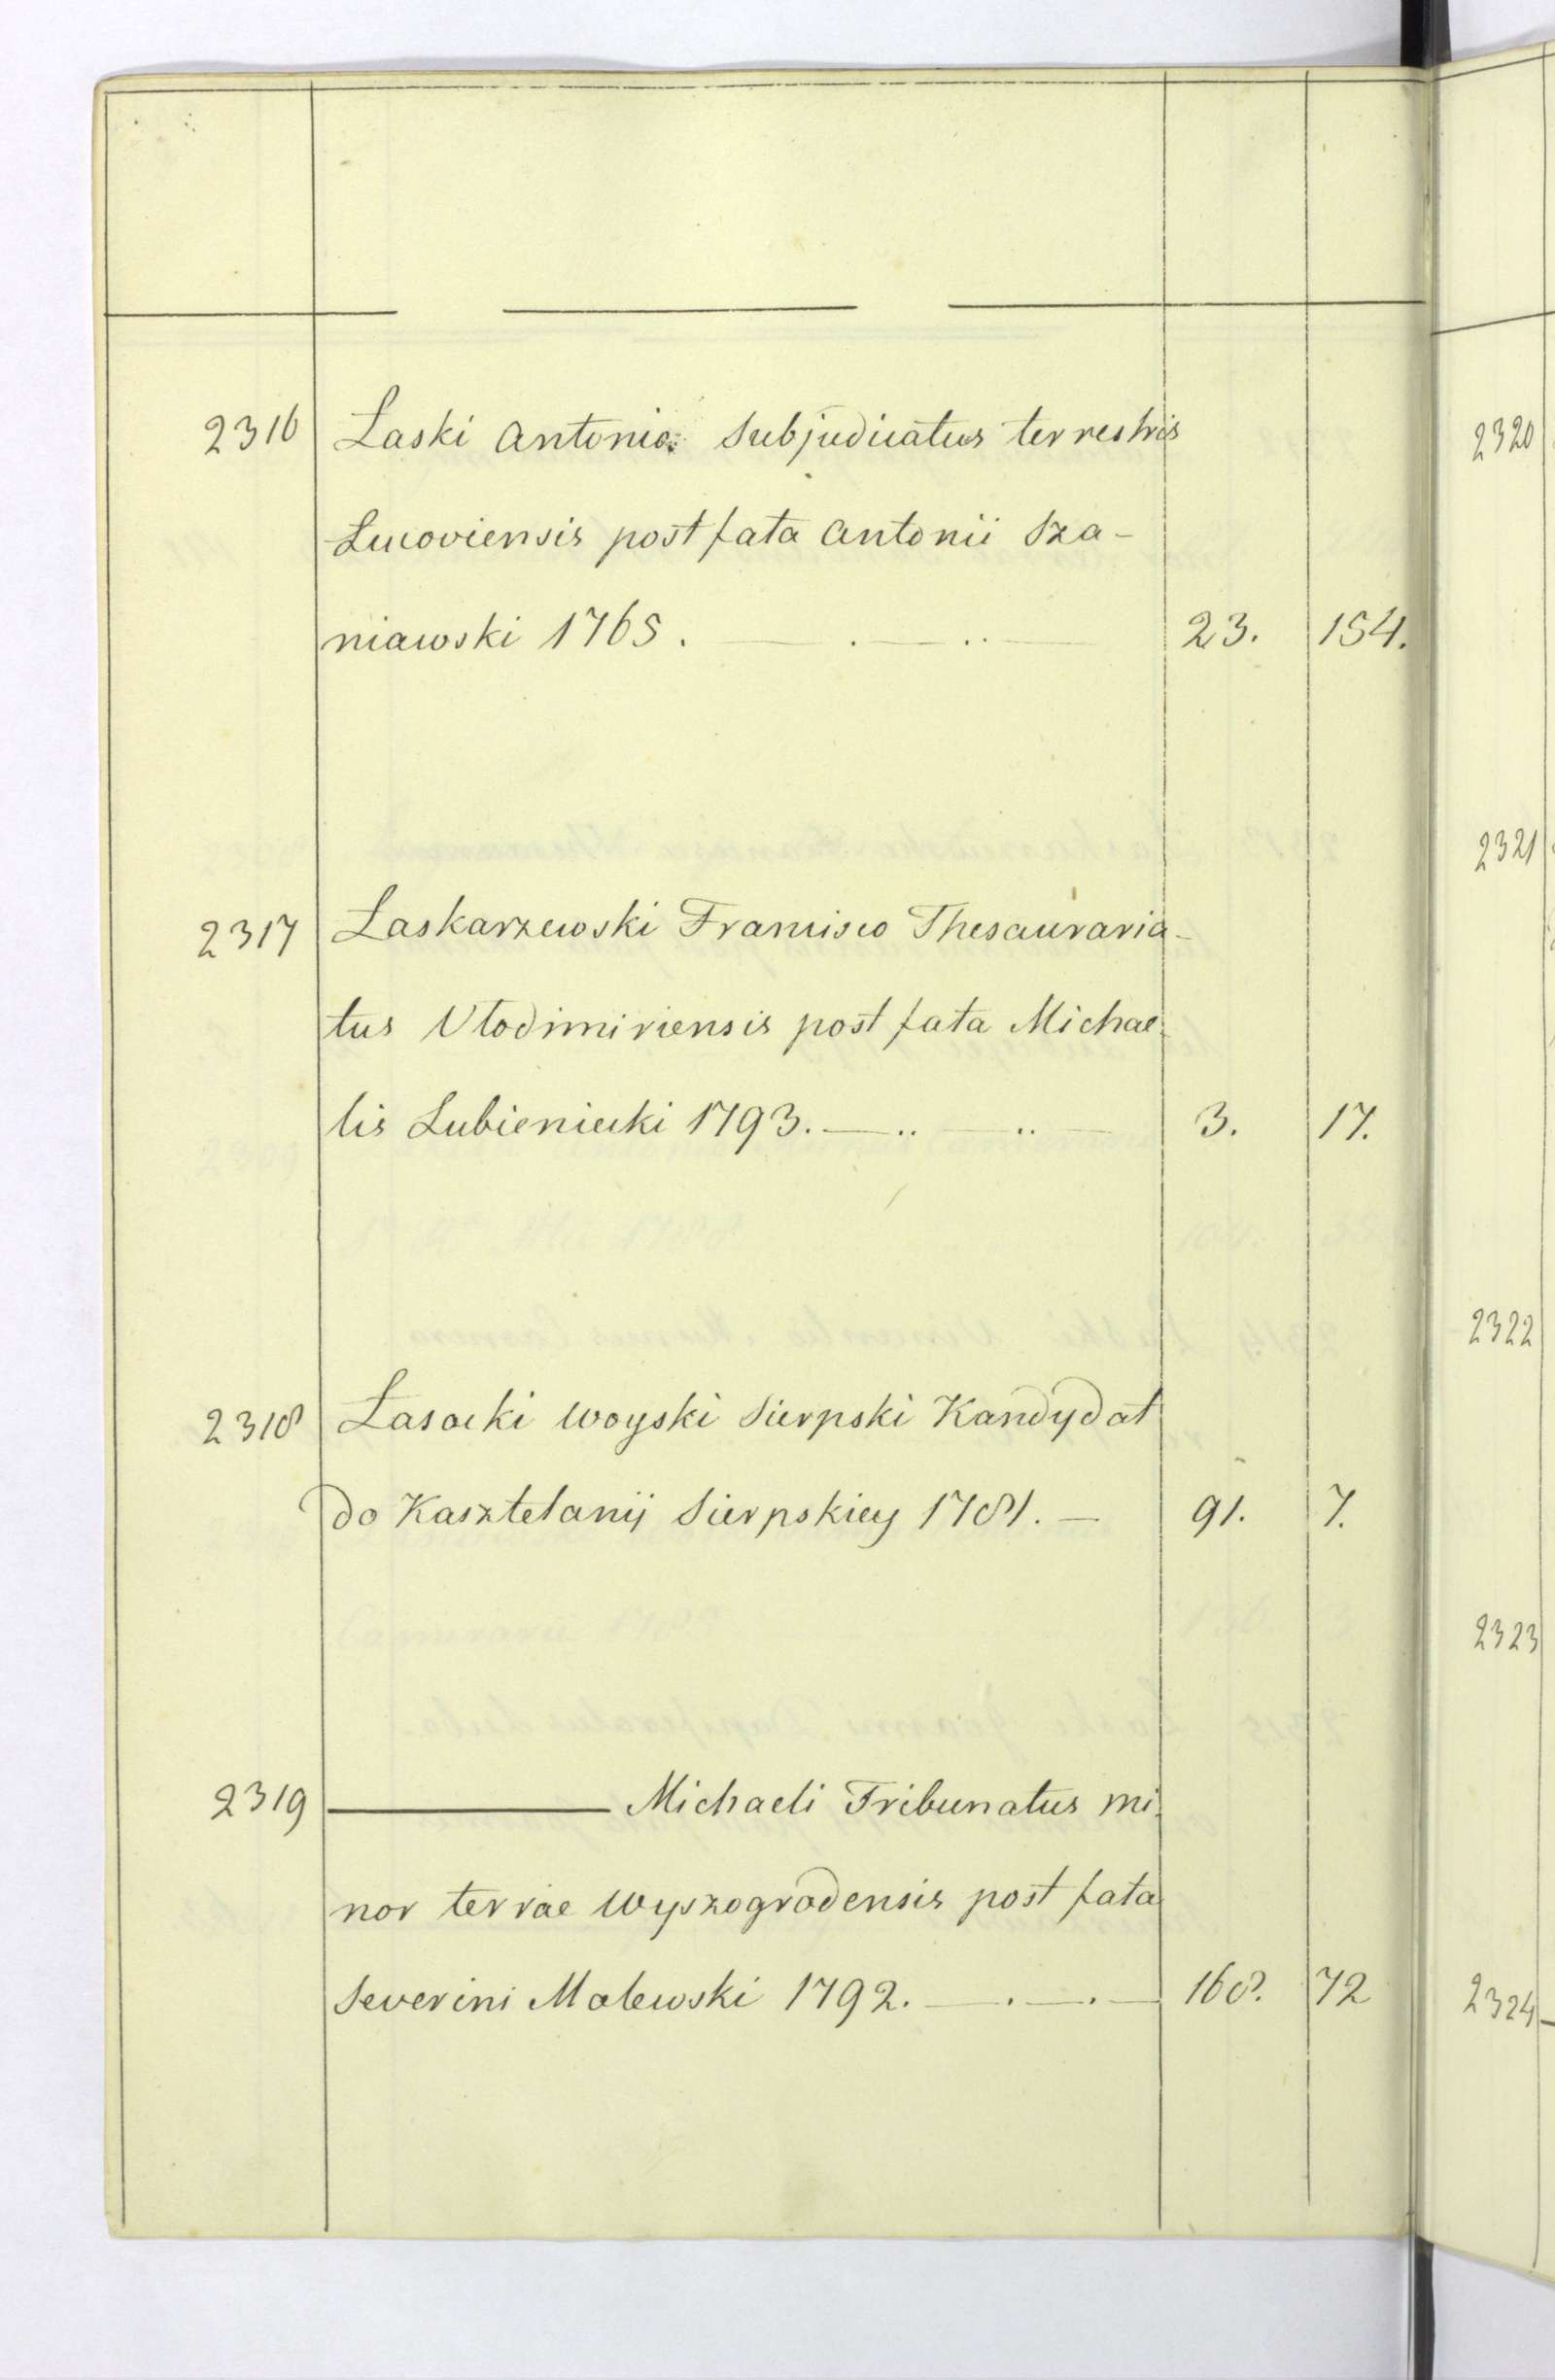 2316 Laski Antonio Subjudicatus terrestris
Lucoviensis post fata Antonii Sza-
niawski 1765. 23. 154.
2317 Laskarzewski Francisco Thesauraria-
tus Vlodimiriensis post fata Michae-
lis Lubieniecki 1793. 3. 17.
2318 Łasocki Woyski Sierpski Kandydat
do Kasztelanij Sierpskiey 1781. 91. 7.
2319 Michaeli Tribunatus mi-
nor terrae Wyszogradensis post fata
Severini Malewski 1792. 168. 72
2320
2321
2322
2323
2324